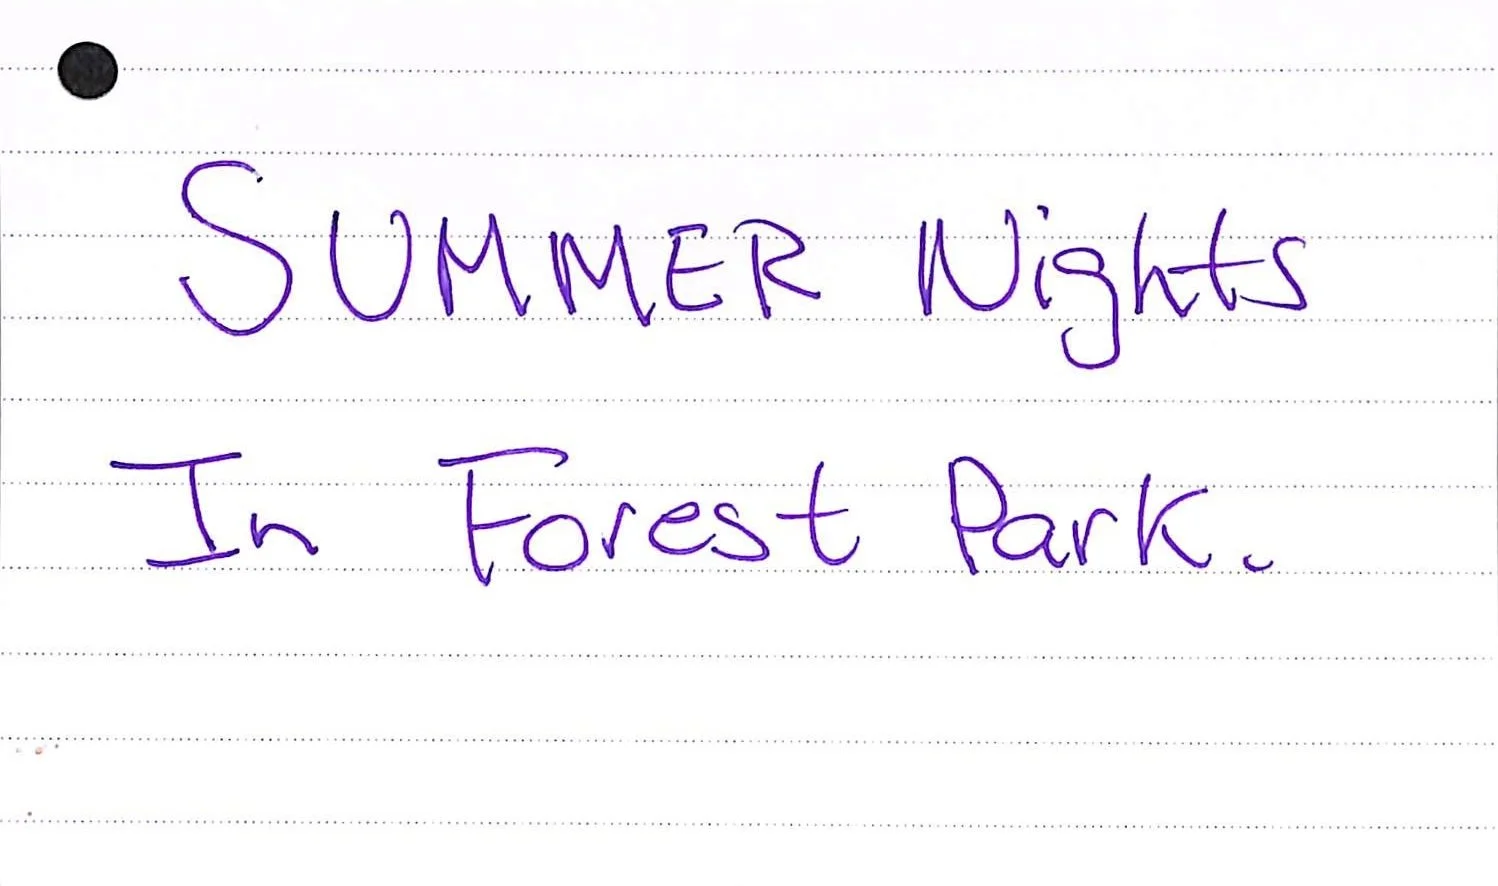 SUMMER Nights
In Forest Park.